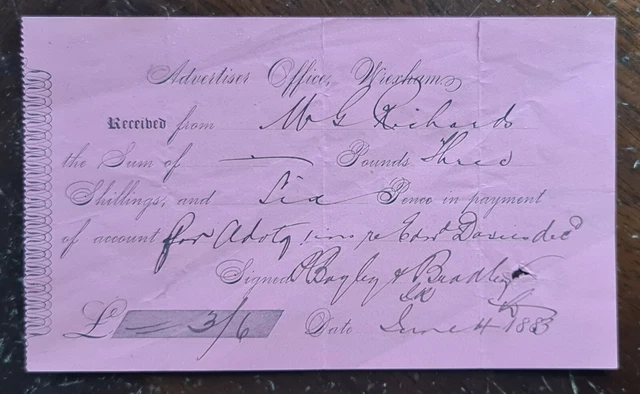 Advertiser Office, Wrexham
Received from Mr G Richards
the Sum of — Pounds Three
Shillings, and Six Pence in payment
of account for Advtg, ins re Edwd Davies decd
Signed Bayley & Bradley
£ — 3/6 Date June 4 1883